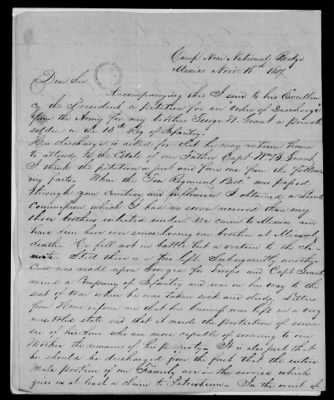 Camp Near National Bridge
Mexico Novr 18th 1847
Dear Sir
Accompanying this I send to his Excellen-
cy the President a petition for an Order of Discharge
from the Army for my brother George W. Grant a private
soldier in the 13th Reg of Infantry.
His discharge is asked for that he may return home
to attend to the Estate of our Father Capt Wm B. Grant
I think the petition a just and fair one from the follow-
ing facts. When the Ten Regiment Bill was passed
through your kindness and influence I obtained a Lieut
Commission which I had no sooner received than my
three brothers enlisted under me. We came to Mexico and
have been here ever since losing one brother at
death. He fell not in battle but a victim to the cli-
mate. Still there a few left. Subsequently another
Call was made upon Georgia for troops and Capt Grant
raised a Company of Infantry and was on his way to the
seat of War when he was taken sick and died. Letters
from Home inform me that his property was left in a very
unsettled state and that it needs the protection of some
one of his sons who are more capable of securing to our
Mother the remains of his property. It is also just that
he should be discharged upon the fact that the entire
Male portion of our Family are in the service which
gives us at least a claim to Patriotism. In the event of